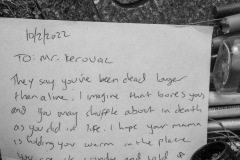 10/2/2022
TO: Mr. Kerouac
They say you've been dead longer
then alive. I imagine that bores you,
and you may shuffle about in death
as you did in life. I hope your mama
is holding you warm in the place
you